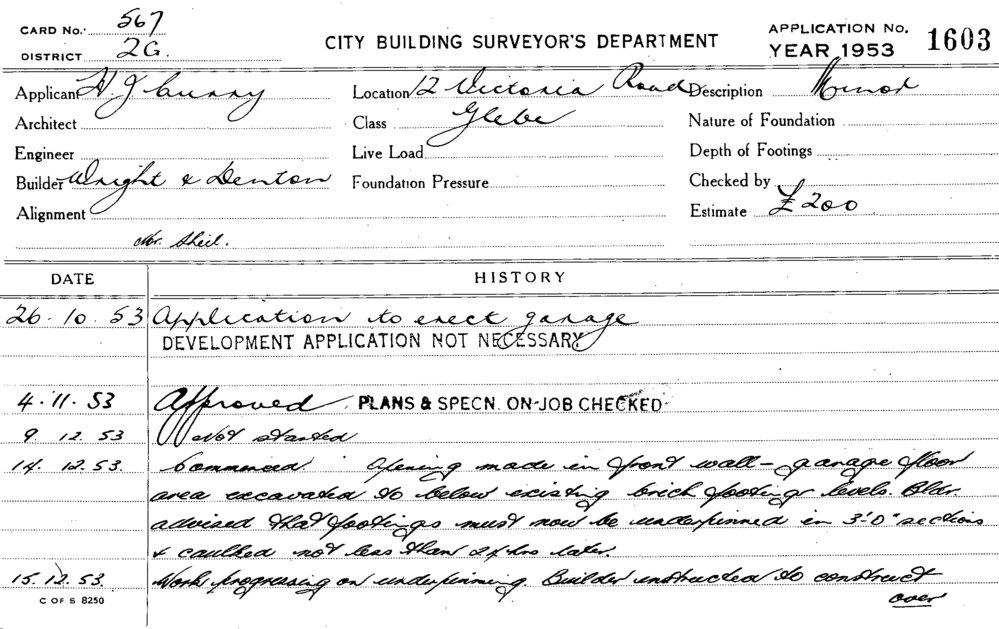 CARD No. 567
DISTRICT 2G.
CITY BUILDING SURVEYOR'S DEPARTMENT
APPLICATION No. 1603
YEAR 1953
Applicant H J Curry
Location 12 Victoria Road
Description Minor
Architect
Class Glebe
Nature of Foundation
Engineer
Live Load
Depth of Footings
Builder Wright & Denton
Foundation Pressure
Checked by
Alignment
Estimate £200
Mr. Sheil.
DATE HISTORY
26.10.53 Application to erect garage
DEVELOPMENT APPLICATION NOT NECESSARY
4.11.53 Approved. PLANS & SPECN. ON-JOB CHECKED
9.12.53 Not started
14.12.53. Commenced Opening made in front wall - garage floor
area excavated to below existing brick footings levels. Bldr.
advised that footings must now be underpinned in 3'-0" sections
& caulked not less than 24 hrs later.
15.12.53. Work progressing on underpinning. Builder instructed to construct
over
C OF S 8250